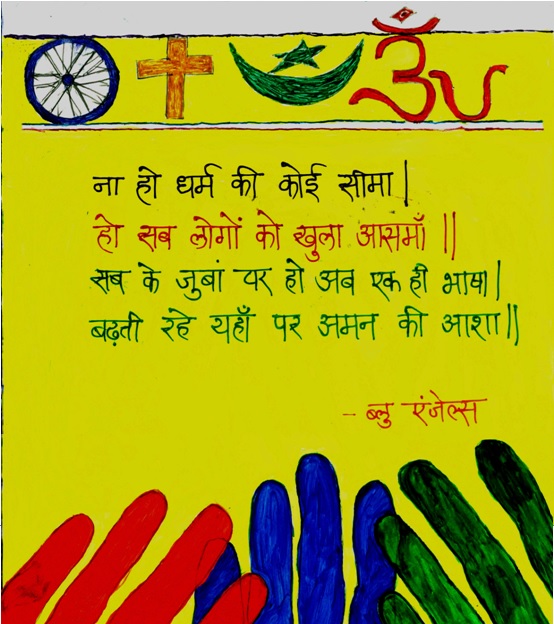 ॐ
ना हो धर्म की कोई सीमा|
हो सब लोगों को खुला आसमाँ ||
सब के जुबां पर हो अब एक ही भाषा|
बढ़ती रहे यहाँ पर अमन की आशा||
- ब्लु एंजेल्स